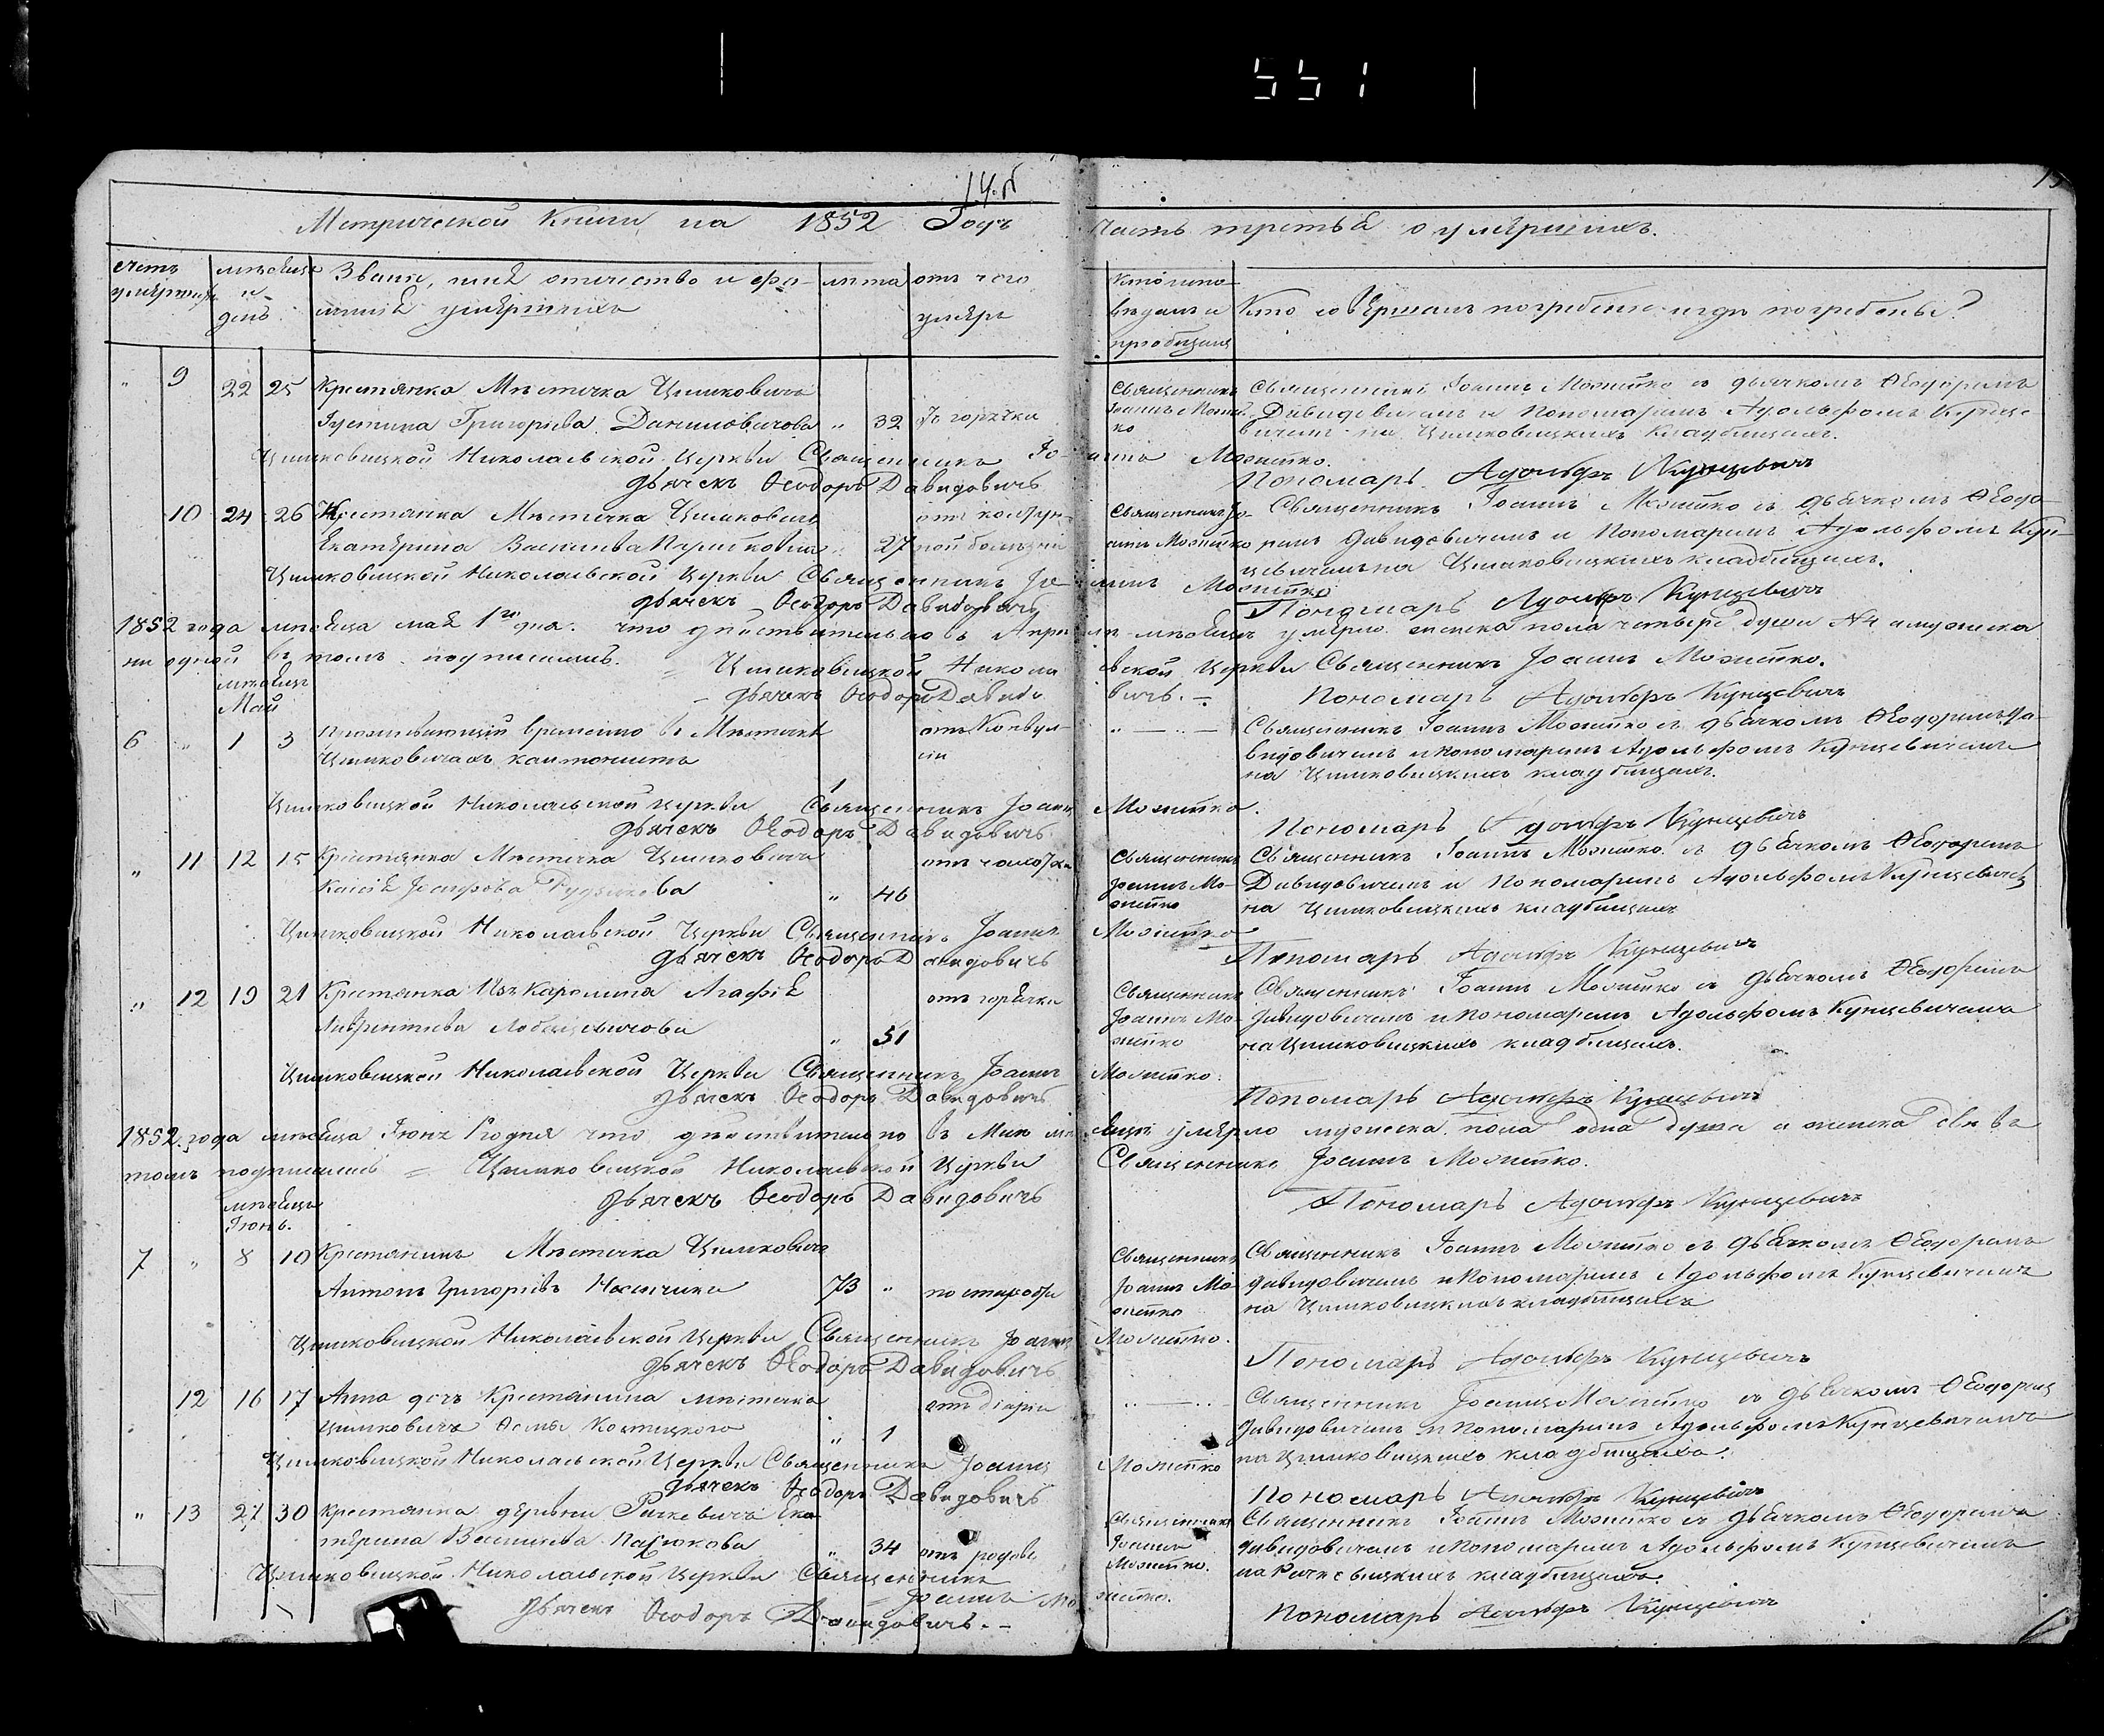 551
14.
Метрической Книги на 1852 Годъ
часть третья о умершихъ.
счетъ умершихъ
мѣсяцъ и день
Званіе, имя отчество и фамилія умершихъ
лѣта
отъ чего умеръ
Кто исповѣдалъ и пріобщилъ
Кто совершалъ погребеніе и гдѣ погребены?
" 9 22 25 Крестянка Мѣстечка Цимковичъ
Іустина Григорьева Даниловичова " 32 горячки
Священникъ Іоаннъ Можейко
Священникъ Іоаннъ Можейко съ дьячкомъ Ѳеодоромъ
Давидовичемъ и Пономаремъ Адольфомъ Кунцевичемъ на Цимковицкихъ Кладбищахъ.
Цимковицкой Николаевской Церкви Священникъ Іоаннъ Можейко.
Дьячекъ Ѳеодоръ Давидовичъ
Пономарь Адольфъ Кунцевичъ
10 24 26 Крестянка Мѣстечка Цимковичъ
Екатерина Василіева " 27
Священникъ Іоаннъ Можейко
Священникъ Іоаннъ Можейко съ дьячкомъ Ѳеодоромъ Давидовичемъ и Пономаремъ Адольфомъ Кунцевичемъ на Цимковицкихъ кладбищахъ.
Цимковицкой Николаевской Церкви Священникъ Іоаннъ Можейко
Дьячекъ Ѳеодоръ Давидовичъ
Пономарь Адольфъ Кунцевичъ
1852 года мѣсяца мая 1го дня. что дѣйствительно въ Апрелѣ мѣсяцѣ умерло женска пола четыре души №4 а мужеска
ни одной въ томъ подписались. Цимковицкой Николаевской Церкви Священникъ Іоаннъ Можейко.
Дьячекъ Ѳеодоръ Давидовичъ.
Пономарь Адольфъ Кунцевичъ
мѣсяцъ Май
6 " 1 3 Проживающій временно въ Мѣстечкѣ
Цимковичахъ кантонистъ 1
отъ Конвульсіи
Священникъ Іоаннъ Можейко съ дьячкомъ Ѳеодоромъ Давидовичемъ и пономаремъ Адольфомъ Кунцевичемъ
на Цимковицкихъ кладбищахъ.
Цимковицкой Николаевской Церкви Священникъ Іоаннъ Можейко.
Дьячекъ Ѳеодоръ Давидовичъ
Пономарь Адольфъ Кунцевичъ
" 11 12 15 Крестянка Мѣстечка Цимковичъ
Іосифова " 46
Священникъ Іоаннъ Можейко
Священникъ Іоаннъ Можейко съ дьячкомъ Ѳеодоромъ
Давидовичемъ и Пономаремъ Адольфомъ Кунцевичемъ
на Цимковицкихъ кладбищахъ
Цимковицкой Николаевской Церкви Священникъ Іоаннъ Можейко
Дьячекъ Ѳеодоръ Давидовичъ
Пономарь Адольфъ Кунцевичъ
" 12 19 21 Крестянка Изъ Каролина Агафія
" 51
отъ горячки
Священникъ Іоаннъ Можейко
Священникъ Іоаннъ Можейко съ дьячкомъ Ѳеодоромъ
Давидовичемъ и Пономаремъ Адольфомъ Кунцевичемъ
на Цимковицкихъ кладбищахъ.
Цимковицкой Николаевской Церкви Священникъ Іоаннъ Можейко.
Дьячекъ Ѳеодоръ Давидовичъ
Пономарь Адольфъ Кунцевичъ
1852 года мѣсяца Іюня дня что дѣйствительно въ Маи мѣсяцѣ умерло мужеска пола одна душа а женска двѣ въ
томъ подписались Цимковицкой Николаевской Церкви Священникъ Іоаннъ Можейко.
Дьячекъ Ѳеодоръ Давидовичъ
Пономарь Адольфъ Кунцевичъ
мѣсяцъ Іюнь.
7 " 8 10 Крестянинъ Мѣстечка Цимковичъ
Антонъ Григорьевъ 73 " по старости
Священникъ Іоаннъ Можейко
Священникъ Іоаннъ Можейко съ дьячкомъ Ѳеодоромъ
Давидовичемъ и Пономаремъ Адольфомъ Кунцевичемъ
на Цимковицкихъ кладбищахъ
Цимковицкой Николаевской Церкви Священникъ Іоаннъ Можейко.
Дьячекъ Ѳеодоръ Давидовичъ
Пономарь Адольфъ Кунцевичъ
12 16 17 Анна дочь Крестянина мѣстечка
Цимковичъ " 1
Священникъ Іоаннъ Можейко съ дьячкомъ Ѳеодоромъ
Давидовичемъ и Пономаремъ Адольфомъ Кунцевичемъ
на Цимковицкихъ кладбищахъ.
Цимковицкой Николаевской Церкви Священникъ Іоаннъ Можейко
Дьячекъ Ѳеодоръ Давидовичъ
Пономарь Адольфъ Кунцевичъ
" 13 27 30 Крестянка деревни Екатерина " 34 отъ родовъ
Священникъ Іоаннъ Можейко.
Священникъ Іоаннъ Можейко съ дьячкомъ Ѳеодоромъ
Давидовичемъ и Пономаремъ Адольфомъ Кунцевичемъ
на кладбищахъ.
Цимковицкой Николаевской Церкви Священникъ Іоаннъ Можейко.
Дьячекъ Ѳеодоръ Давидовичъ.
Пономарь Адольфъ Кунцевичъ